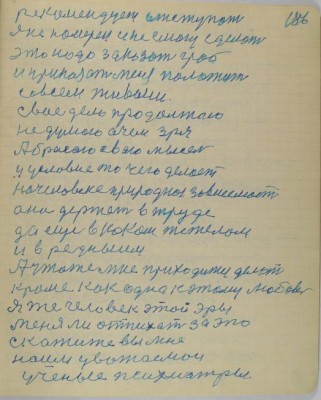 186
рекомендует отступат
Я не помрем и не смогу сделат
это надо заказат гроб
и приказат меня положит
совсем живыми.
свое дело продолжаю
не думаю о чем зря
Я бросаю свою мысел
и условие то чего делаат
на человеке природная зависемаст
она держет в труде
да еще в каком тяжелом
и в
А что же мне приходится делат
кроме как одна к этому любов
Я же человек этой эры
меня ли отпихат за это
скажите вы мне
наши уважаемои
ученые психиатры